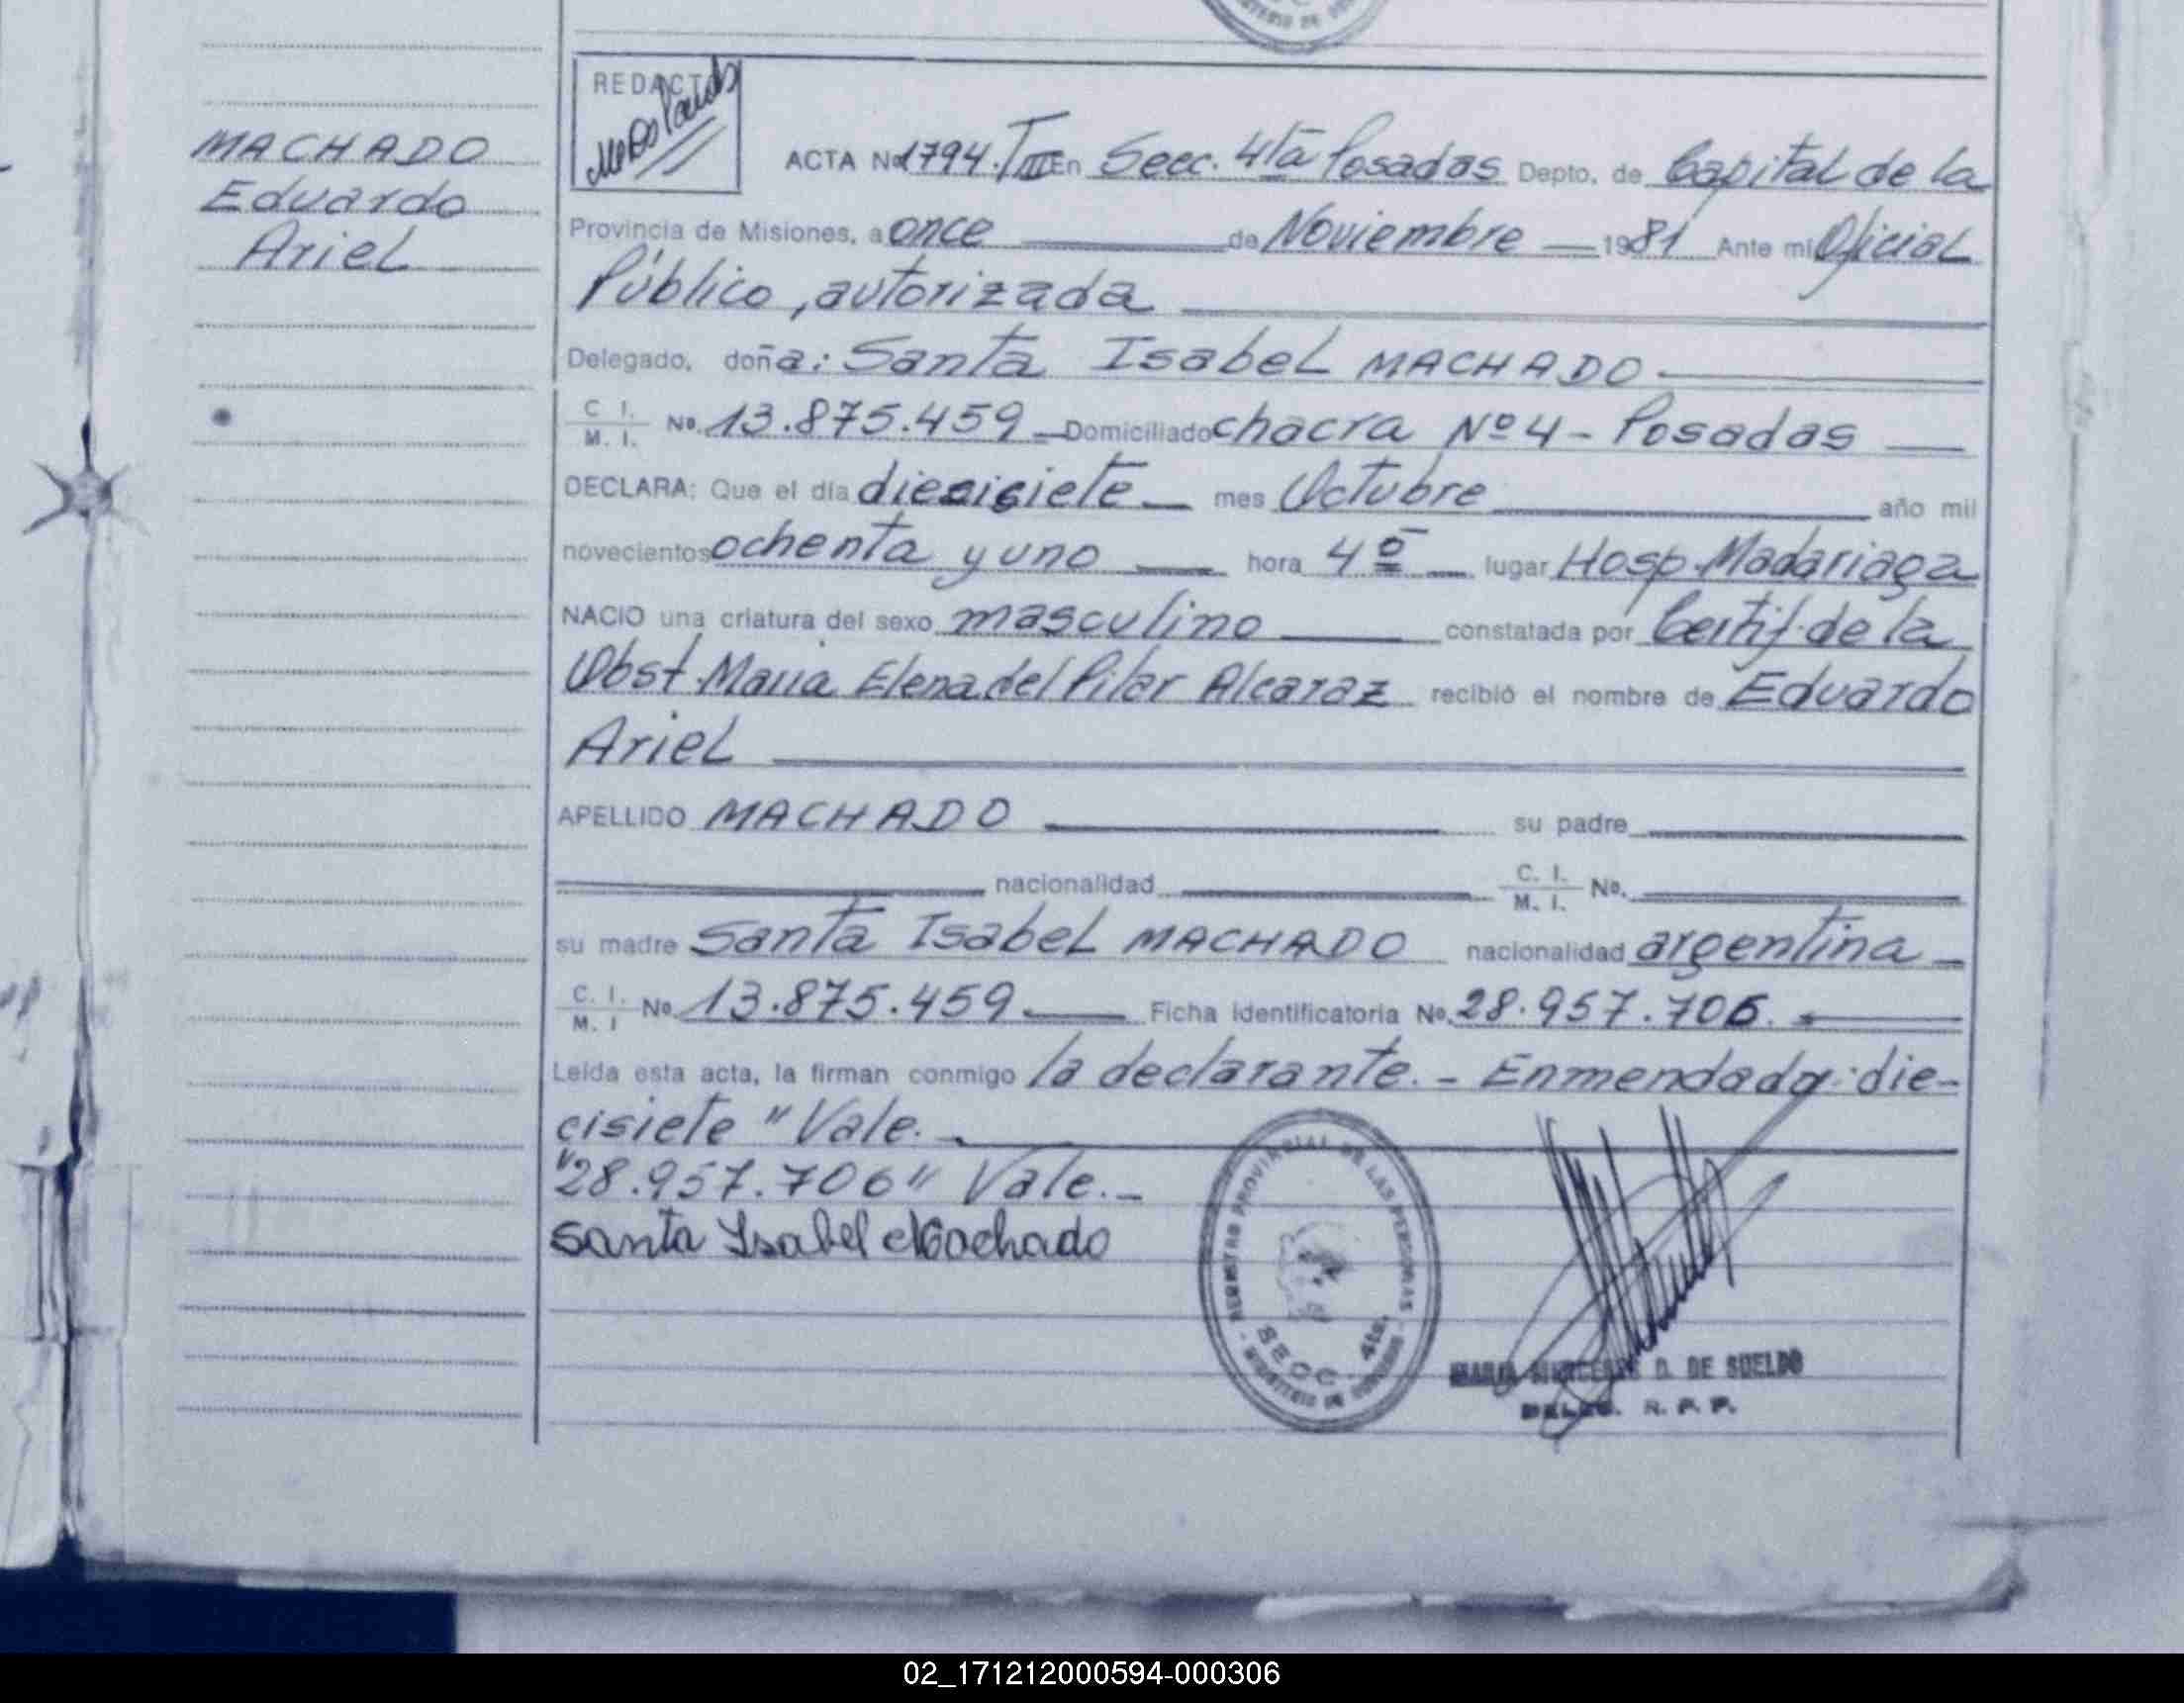 MACHADO
Eduardo
Ariel
REDACTO
ACTA No 1794. T III En Secc. 4ta Posadas Depto. de Capital de la
Provincia de Misiones, a once de Noviembre 1981 Ante mi Oficial
Público, autorizada
Delegado, doña: Santa Isabel MACHADO
C I. M. I. No. 13.875.459 Domiciliado chacra Nº 4 - Posadas
DECLARA: Que el día diecisiete mes Octubre año mil
novecientos ochenta y uno hora 4º lugar Hosp. Madariaga
NACIO una criatura del sexo masculino constatada por Certif. de la
Obst. Maria Elena del Pilar Alcaraz recibió el nombre de Eduardo
Ariel
APELLIDO MACHADO su padre
nacionalidad C. I. M. I. No.
su madre Santa Isabel MACHADO nacionalidad argentina
C. I. M. I No. 13.875.459 Ficha identificatoria No. 28.957.706.
Leída esta acta, la firman conmigo la declarante. - Enmendado: die-
cisiete" Vale.
"28.957.706" Vale. -
Santa Isabel Machado
REGISTRO PROVINCIAL DE LAS PERSONAS
SECC. 4ta.
MINISTERIO DE GOBIERNO
MARIA MERCEDES D. DE SUELDO
DELEG. R. P. P.
02_171212000594-000306